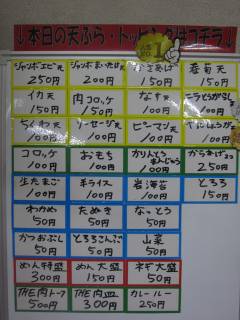 ↓本日の天ぷら・トッピングはコチラ↓
1
ジャンボエビ天 250円
ジャンボまいたけ天 200円
かきあげ 150円
春菊天 150円
イカ天 150円
肉コロッケ 150円
なす天 100円
100円
ちくわ天 100円
ソーセージ天 100円
ピーマン天 100円
100円
コロッケ 100円
おもち 100円
かりんとうまんじゅう 100円
からあげ2コ 250円
生たまご 100円
半ライス 100円
岩海苔 100円
とろろ 150円
わかめ 50円
たぬき 50円
なっとう 50円
かつおぶし 50円
とろろこんぶ 50円
山菜 50円
めん特盛 300円
めん大盛 150円
ネギ大盛 50円
THE肉トーフ 500円
THE肉皿 300円
カレールー 250円